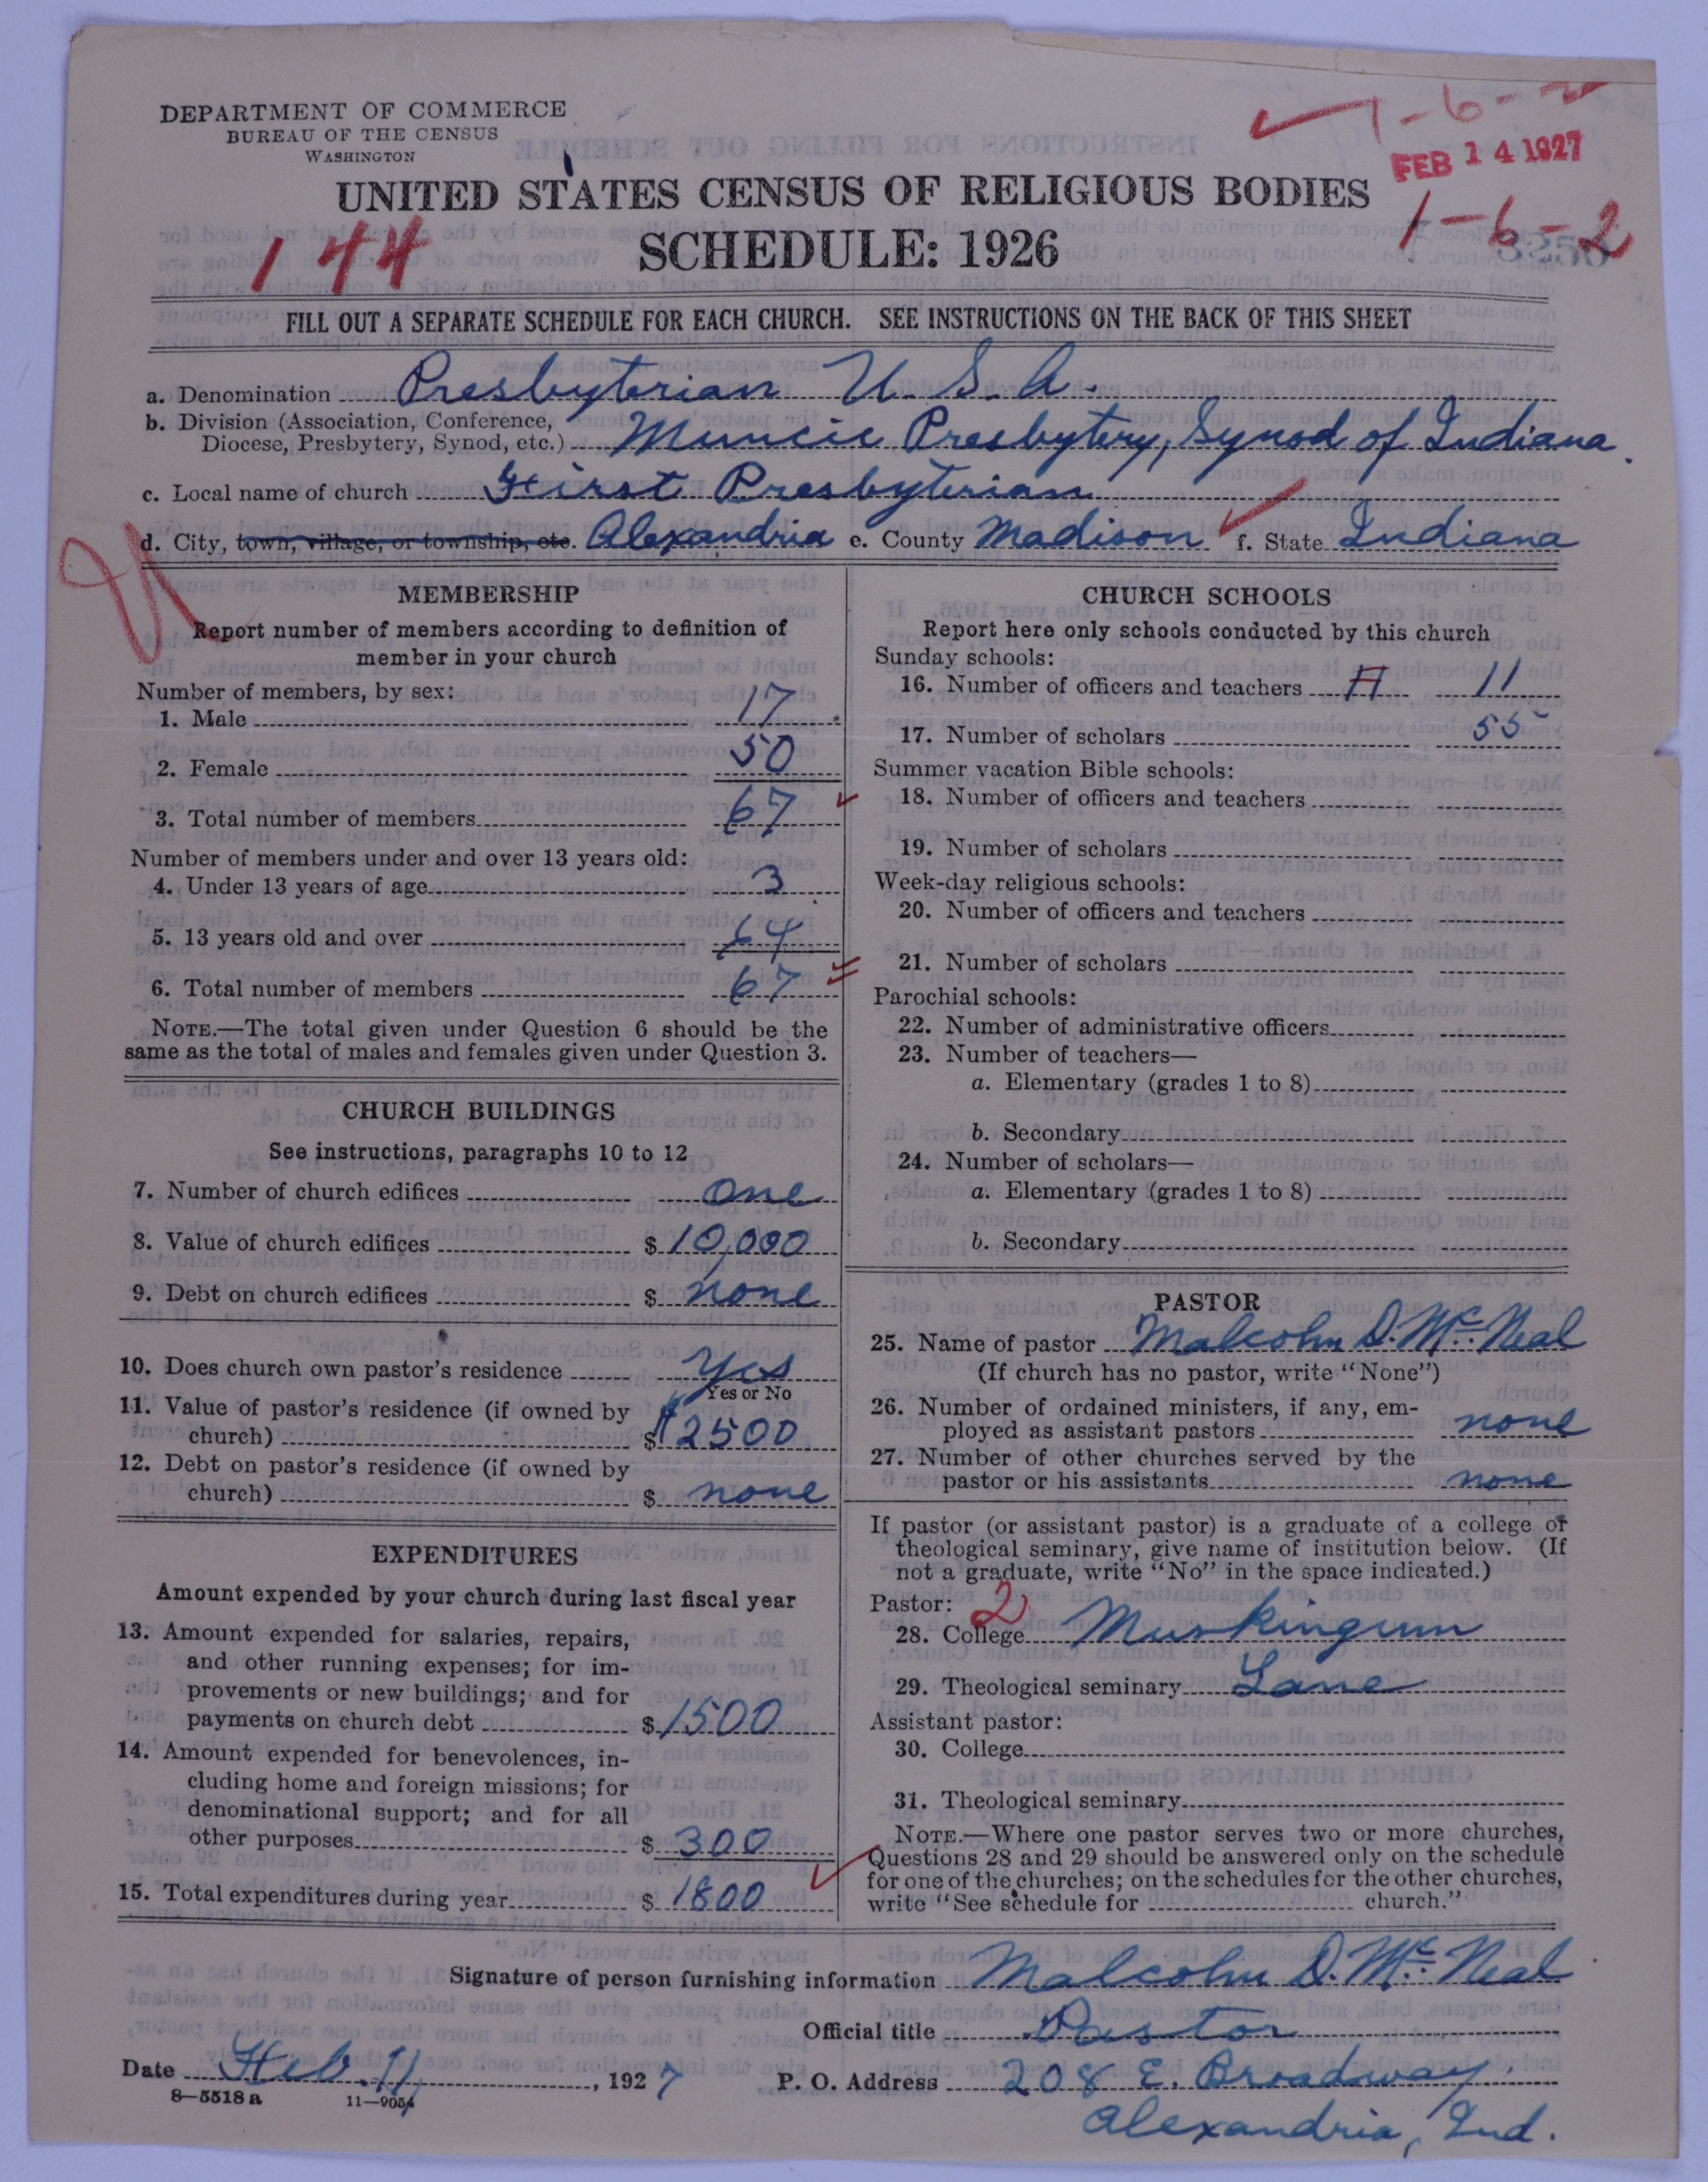 DEPARTMENT OF COMMERCE
BUREAU OF THE CENSUS
WASHINGTON
1-6-2
FEB 14 1927
UNITED STATES CENSUS OF RELIGIOUS BODIES
1-6-2
144
SCHEDULE: 1926
FILL OUT A SEPARATE SCHEDULE FOR EACH CHURCH. SEE INSTRUCTIONS ON THE BACK OF THIS SHEET
a. Denomination Presbyterian U.S.A.
b. Division (Association, Conference,
Diocese, Presbytery, Synod, etc.) Muncie Presbytery, Synod of Indiana
c. Local name of church First Presbyterian
d. City, town, village, or township, etc. Alexandria e. County Madison f. State Indiana
MEMBERSHIP
Report number of members according to definition of
member in your church
Number of members, by sex:
1. Male 17
2. Female 50
3. Total number of members 67
Number of members under and over 13 years old:
4. Under 13 years of age 3
5. 13 years old and over 64
6. Total number of members 67
NOTE.—The total given under Question 6 should be the
same as the total of males and females given under Question 3.
CHURCH BUILDINGS
See instructions, paragraphs 10 to 12
7. Number of church edifices one
8. Value of church edifices $ 10,000
9. Debt on church edifices $ none
10. Does church own pastor's residence Yes
Yes or No
11. Value of pastor's residence (if owned by
church) $ $2500
12. Debt on pastor's residence (if owned by
church) $ none
EXPENDITURES
Amount expended by your church during last fiscal year
13. Amount expended for salaries, repairs,
and other running expenses; for im-
provements or new buildings; and for
payments on church debt $ 1500
14. Amount expended for benevolences, in-
cluding home and foreign missions; for
denominational support; and for all
other purposes $ 300
15. Total expenditures during year $ 1800
CHURCH SCHOOLS
Report here only schools conducted by this church
Sunday schools:
16. Number of officers and teachers 11 11
17. Number of scholars 55
Summer vacation Bible schools:
18. Number of officers and teachers
19. Number of scholars
Week-day religious schools:
20. Number of officers and teachers
21. Number of scholars
Parochial schools:
22. Number of administrative officers
23. Number of teachers—
a. Elementary (grades 1 to 8)
b. Secondary
24. Number of scholars—
a. Elementary (grades 1 to 8)
b. Secondary
PASTOR
25. Name of pastor Malcolm D. McNeal
(If church has no pastor, write "None")
26. Number of ordained ministers, if any, em-
ployed as assistant pastors none
27. Number of other churches served by the
pastor or his assistants none
If pastor (or assistant pastor) is a graduate of a college or
theological seminary, give name of institution below. (If
not a graduate, write "No" in the space indicated.)
Pastor: 2
28. College Muskingum
29. Theological seminary Lane
Assistant pastor:
30. College
31. Theological seminary
NOTE.—Where one pastor serves two or more churches,
Questions 28 and 29 should be answered only on the schedule
for one of the churches; on the schedules for the other churches,
write "See schedule for church."
Signature of person furnishing information Malcolm D. McNeal
Official title Pastor
Date Feb. 11, 1927 P. O. Address 208 E. Broadway.
8-5518a 11-9054
Alexandria, Ind.